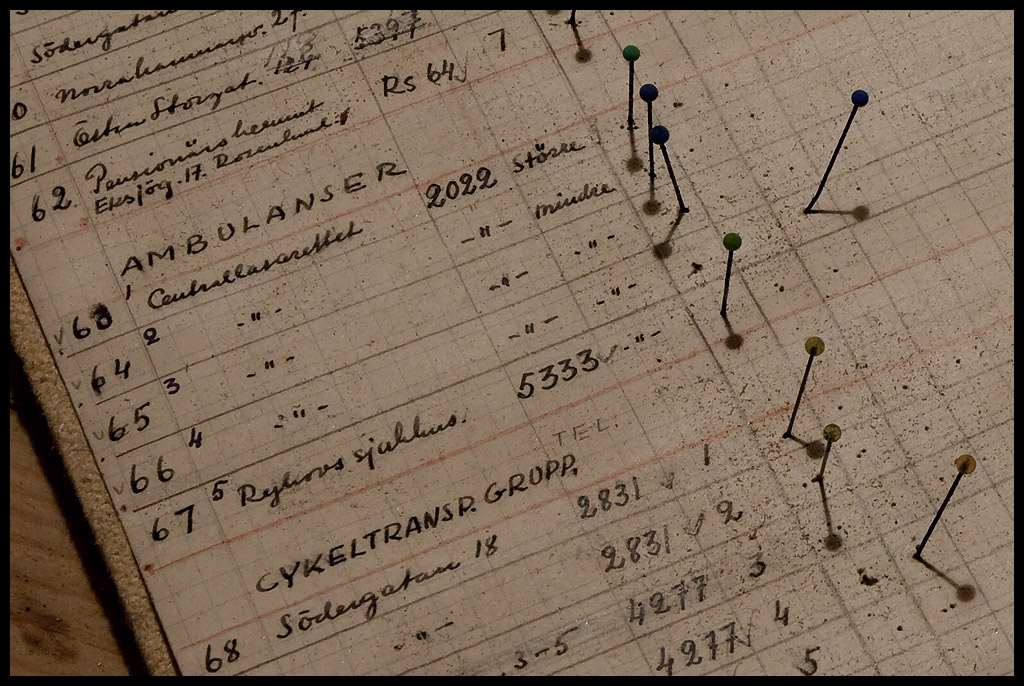 Södergatan
0 Norrahammarsv. 27. 5397
61 Östra Storgat. 127 RS 64 7
62. Pensionärshemmet
Eksjög. 17. Rosenlund.
AMBULANSER
63 1 Centrallasarettet 2022 större
64 2 -"- -"- mindre
65 3 -"- -"- -"-
66 4 -"- -"- -"-
67 5 Ryhovs sjukhus. 5333 -"-
CYKELTRANSP. GRUPP. TEL.
68 Södergatan 18 2831 1
-"- 2831 2
3-5 4277 3
4277 4
5